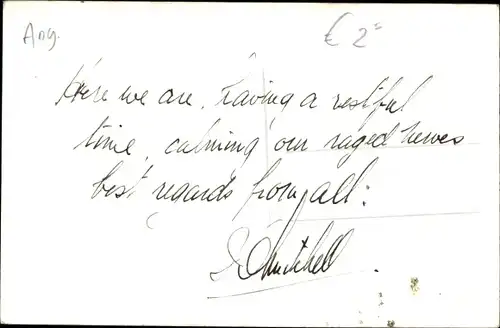 Ang.
€ 2=
Here we are, having a restful
time, calming our raged nerves
best regards from all: